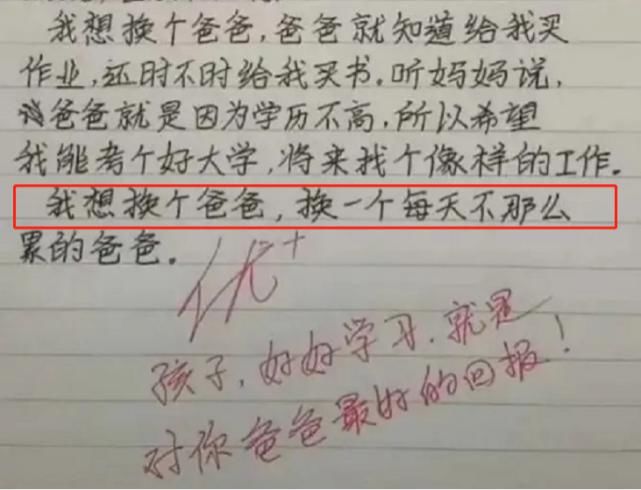 我想换个爸爸,爸爸就知道给我买
作业,还时不时给我买书.听妈妈说,
爸爸就是因为学历不高,所以希望
我能考个好大学,将来找个像样的工作.
我想换个爸爸,换一个每天不那么
累的爸爸。
优+
孩子,好好学习,就是
对你爸爸最好的回报!